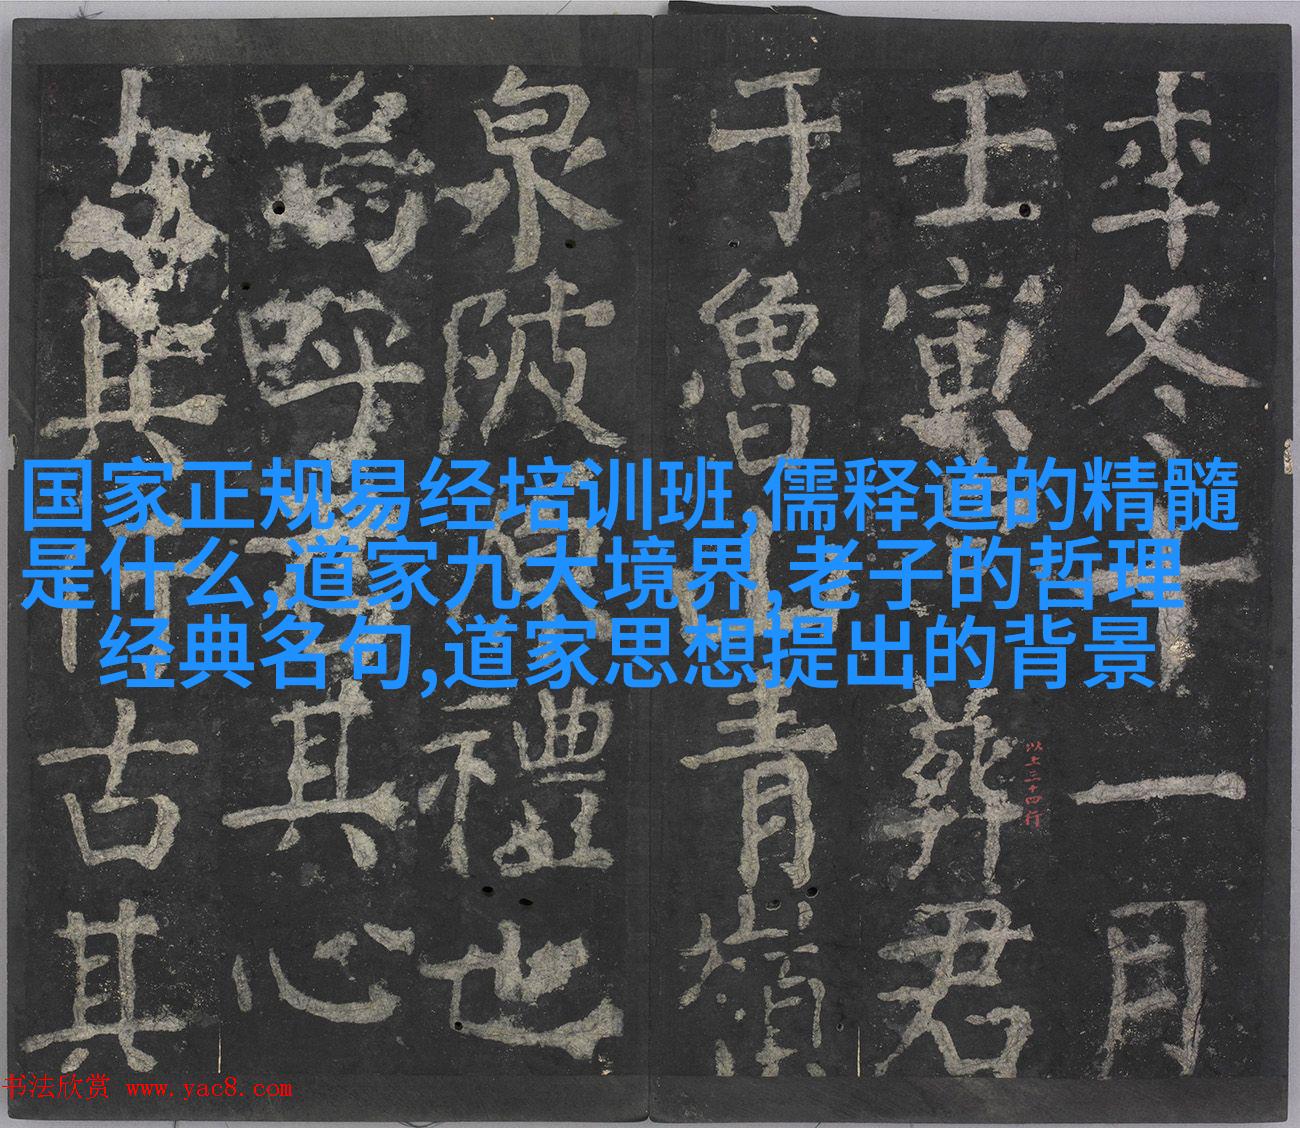 年冬十一月
壬寅葬君
于魯山青嶺
泉陂原禮也
嗚呼其心
其古其
国家正规易经培训班,儒释道的精髓
是什么,道家九大境界,老子的哲理
经典名句,道家思想提出的背景
以上三十四行
书法欣赏 www.yac8.com